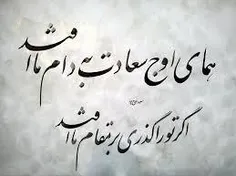 همای اوج سعادت به دام ما افتد
اگر تو را گذری بر مقام ما افتد